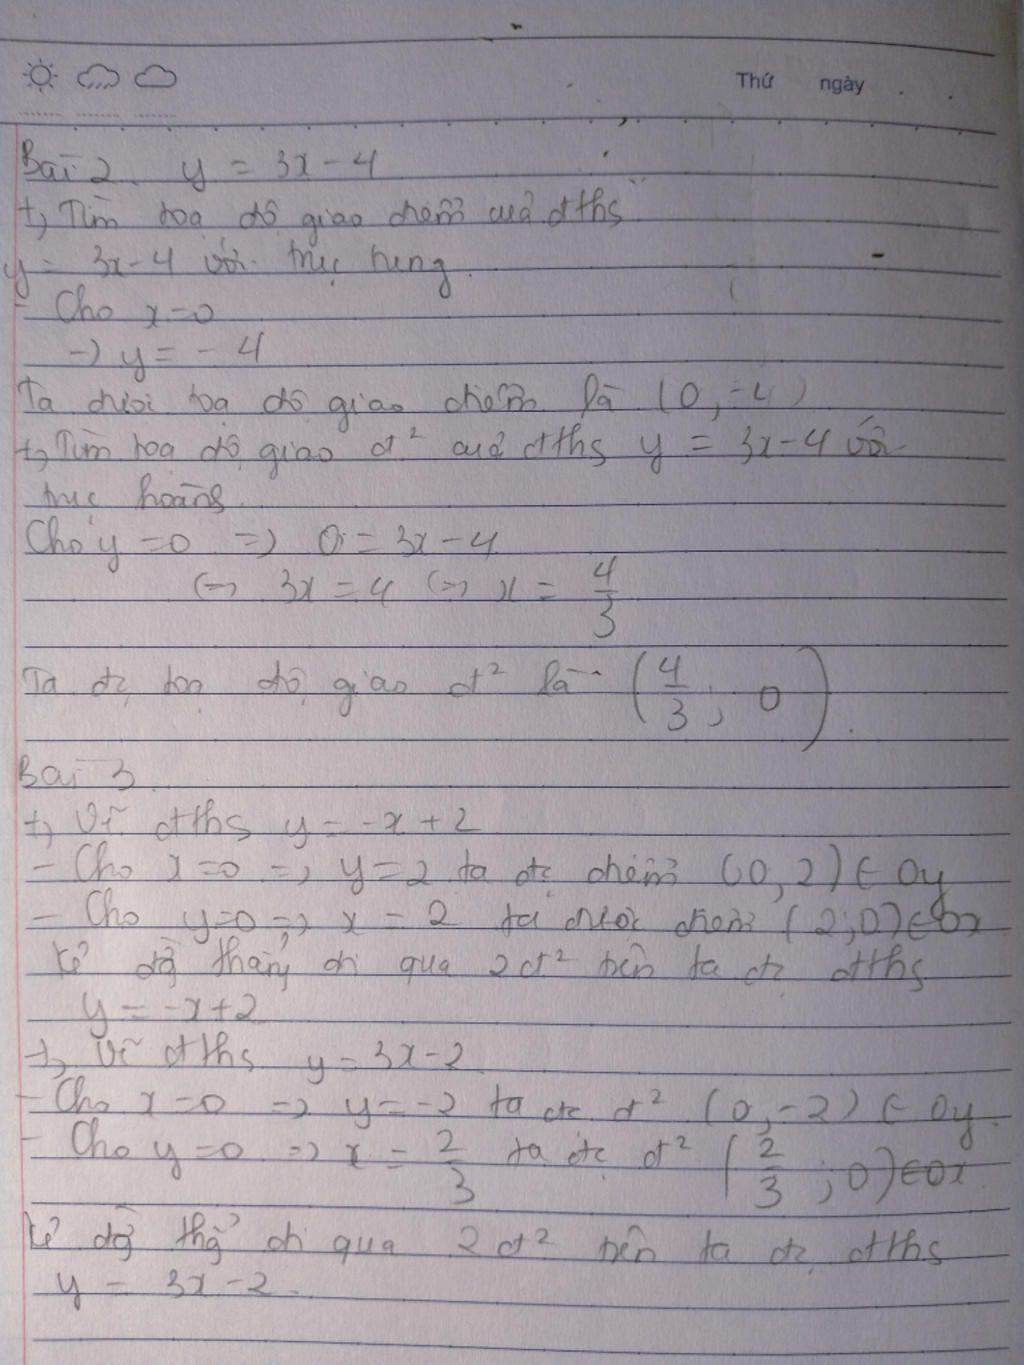 Thứ ngày
Bài 2. y = 3x - 4
+, Tìm toạ độ giao điểm của đths
y = 3x - 4 với trục tung.
- Cho x = 0
=> y = - 4
Ta được toạ độ giao điểm là (0, -4)
+, Tìm toạ độ giao đ² của đths y = 3x - 4 với
trục hoàng.
Cho y = 0 => 0 = 3x - 4
<=> 3x = 4 <=> x = 4/3
Ta đc toạ độ giao đ² là (4/3; 0).
Bài 3.
+, Vẽ đths y = -x + 2
- Cho x = 0 => y = 2 ta đc điểm (0, 2) ∈ Oy
- Cho y = 0 => x = 2 ta được điểm (2; 0) ∈ Ox
Kẻ đg thẳng đi qua 2 đ² trên ta đc đths
y = -x + 2
+, Vẽ đths y = 3x - 2
- Cho x = 0 => y = -2 ta đc đ² (0, -2) ∈ Oy.
- Cho y = 0 => x = 2/3 ta đc đ² (2/3; 0) ∈ Ox.
Kẻ đg thg đi qua 2 đ² trên ta đc đths
y = 3x - 2.